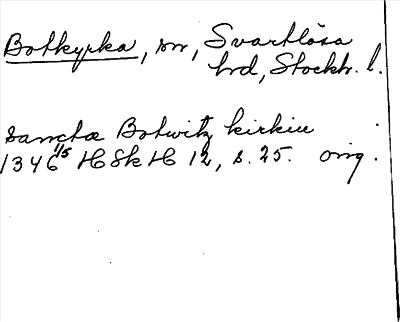 Botkyrka, sn, Svartlösa
hd, Stockh. l.
sanctæ Botwitz kirkiu
1346 1/5 HSkH 12, s. 25. orig.